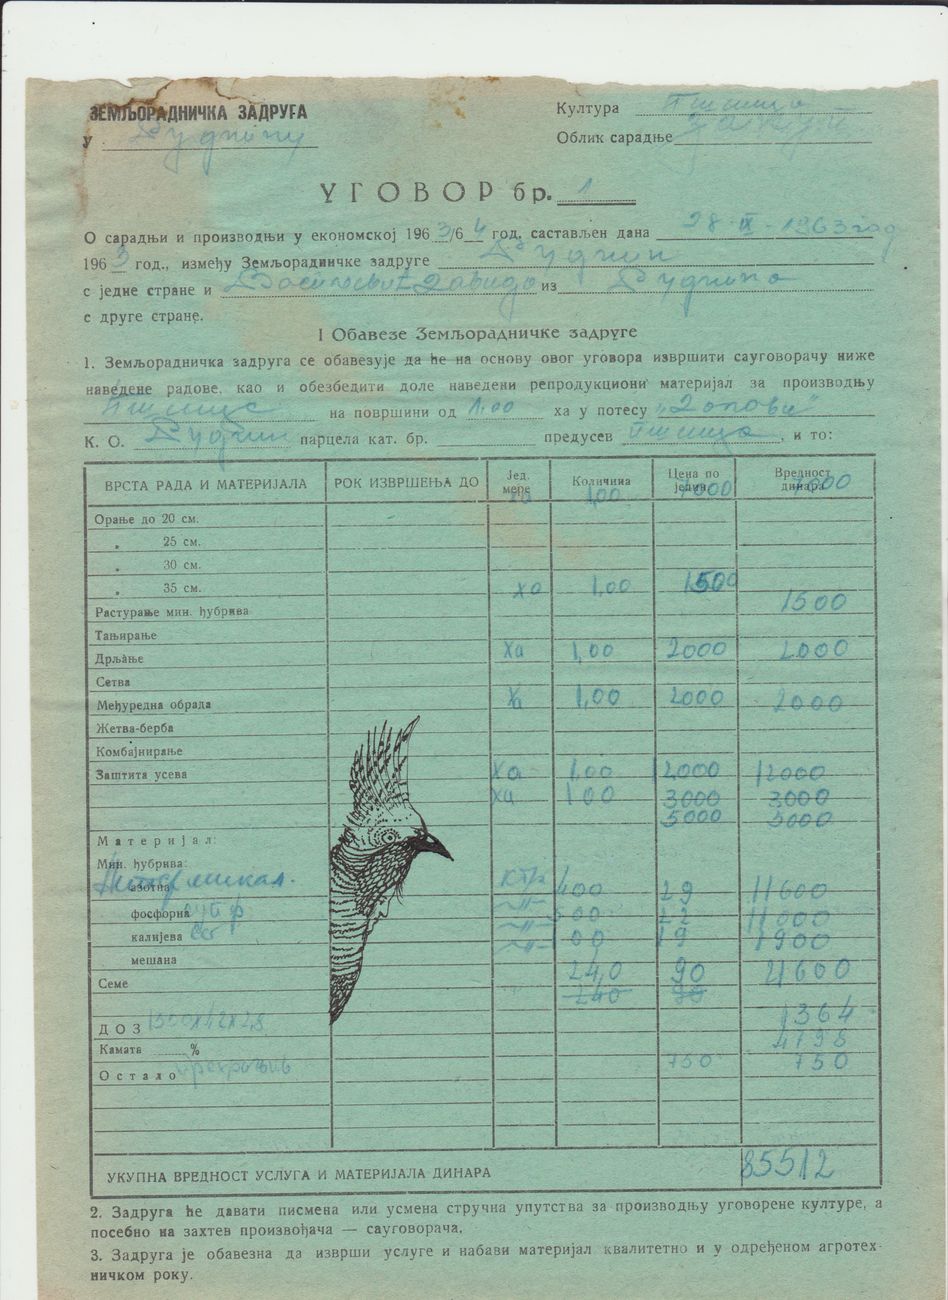 ЗЕМЉОРАДНИЧКА ЗАДРУГА
Култура пшеница
У
Облик сарадње
УГОВОР бр. 1
О сарадњи и производњи у економској 1963/64 год. састављен дана 28-IX-1963 год
1963 год., између Земљорадничке задруге
с једне стране и из
с друге стране.
I Обавезе Земљорадничке задруге
1. Земљорадничка задруга се обавезује да ће на основу овог уговора извршити сауговорачу ниже
наведене радове, као и обезбедити доле наведени репродукциони материјал за производњу
пшенице на површини од 1,00 ха у потесу
К. О. парцела кат. бр. предусев пшеница, и то:
ВРСТА РАДА И МАТЕРИЈАЛА РОК ИЗВРШЕЊА ДО Јед. мере Количина Цена по једин. Вредност динара
ха 1,00 7000 7000
Орање до 20 см.
„ 25 см.
„ 30 см.
„ 35 см. ха 1,00 1500
Растурање мин. ђубрива 1500
Тањирање
Дрљање ха 1,00 2000 2000
Сетва
Међуредна обрада ха 1,00 2000 2000
Жетва-берба
Комбајнирање
Заштита усева ха 1,00 12000 12000
ха 1 00 3000 3000
5000 5000
Материјал:
Мин. ђубрива:
азотна 400 29 11600
фосфорна 500 22 11000
калијева 100 19 1900
мешана
Семе 240 90 21600
240 90
ДОЗ 1364
Камата %
4798
Остало 750 750
УКУПНА ВРЕДНОСТ УСЛУГА И МАТЕРИЈАЛА ДИНАРА 85512
2. Задруга ће давати писмена или усмена стручна упутства за производњу уговорене културе, а
посебно на захтев произвођача — сауговорача.
3. Задруга је обавезна да изврши услуге и набави материјал квалитетно и у одређеном агротех-
ничком року.